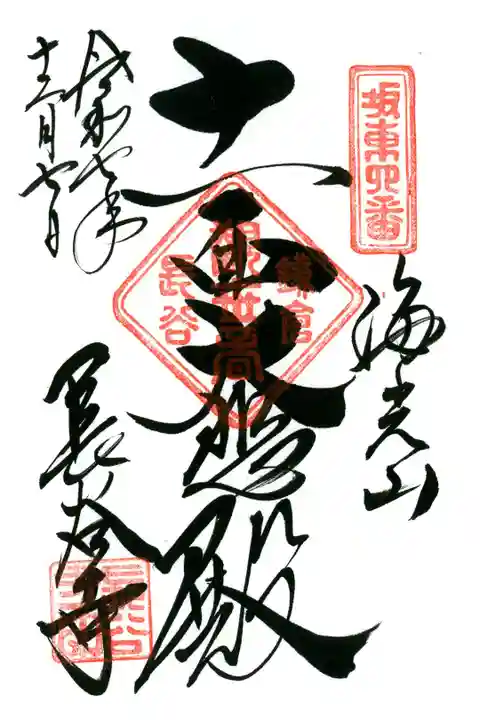 坂東四番
海光山
十一面大悲殿
鎌倉
観世音
長谷
令和七年
十二月七日
長谷寺